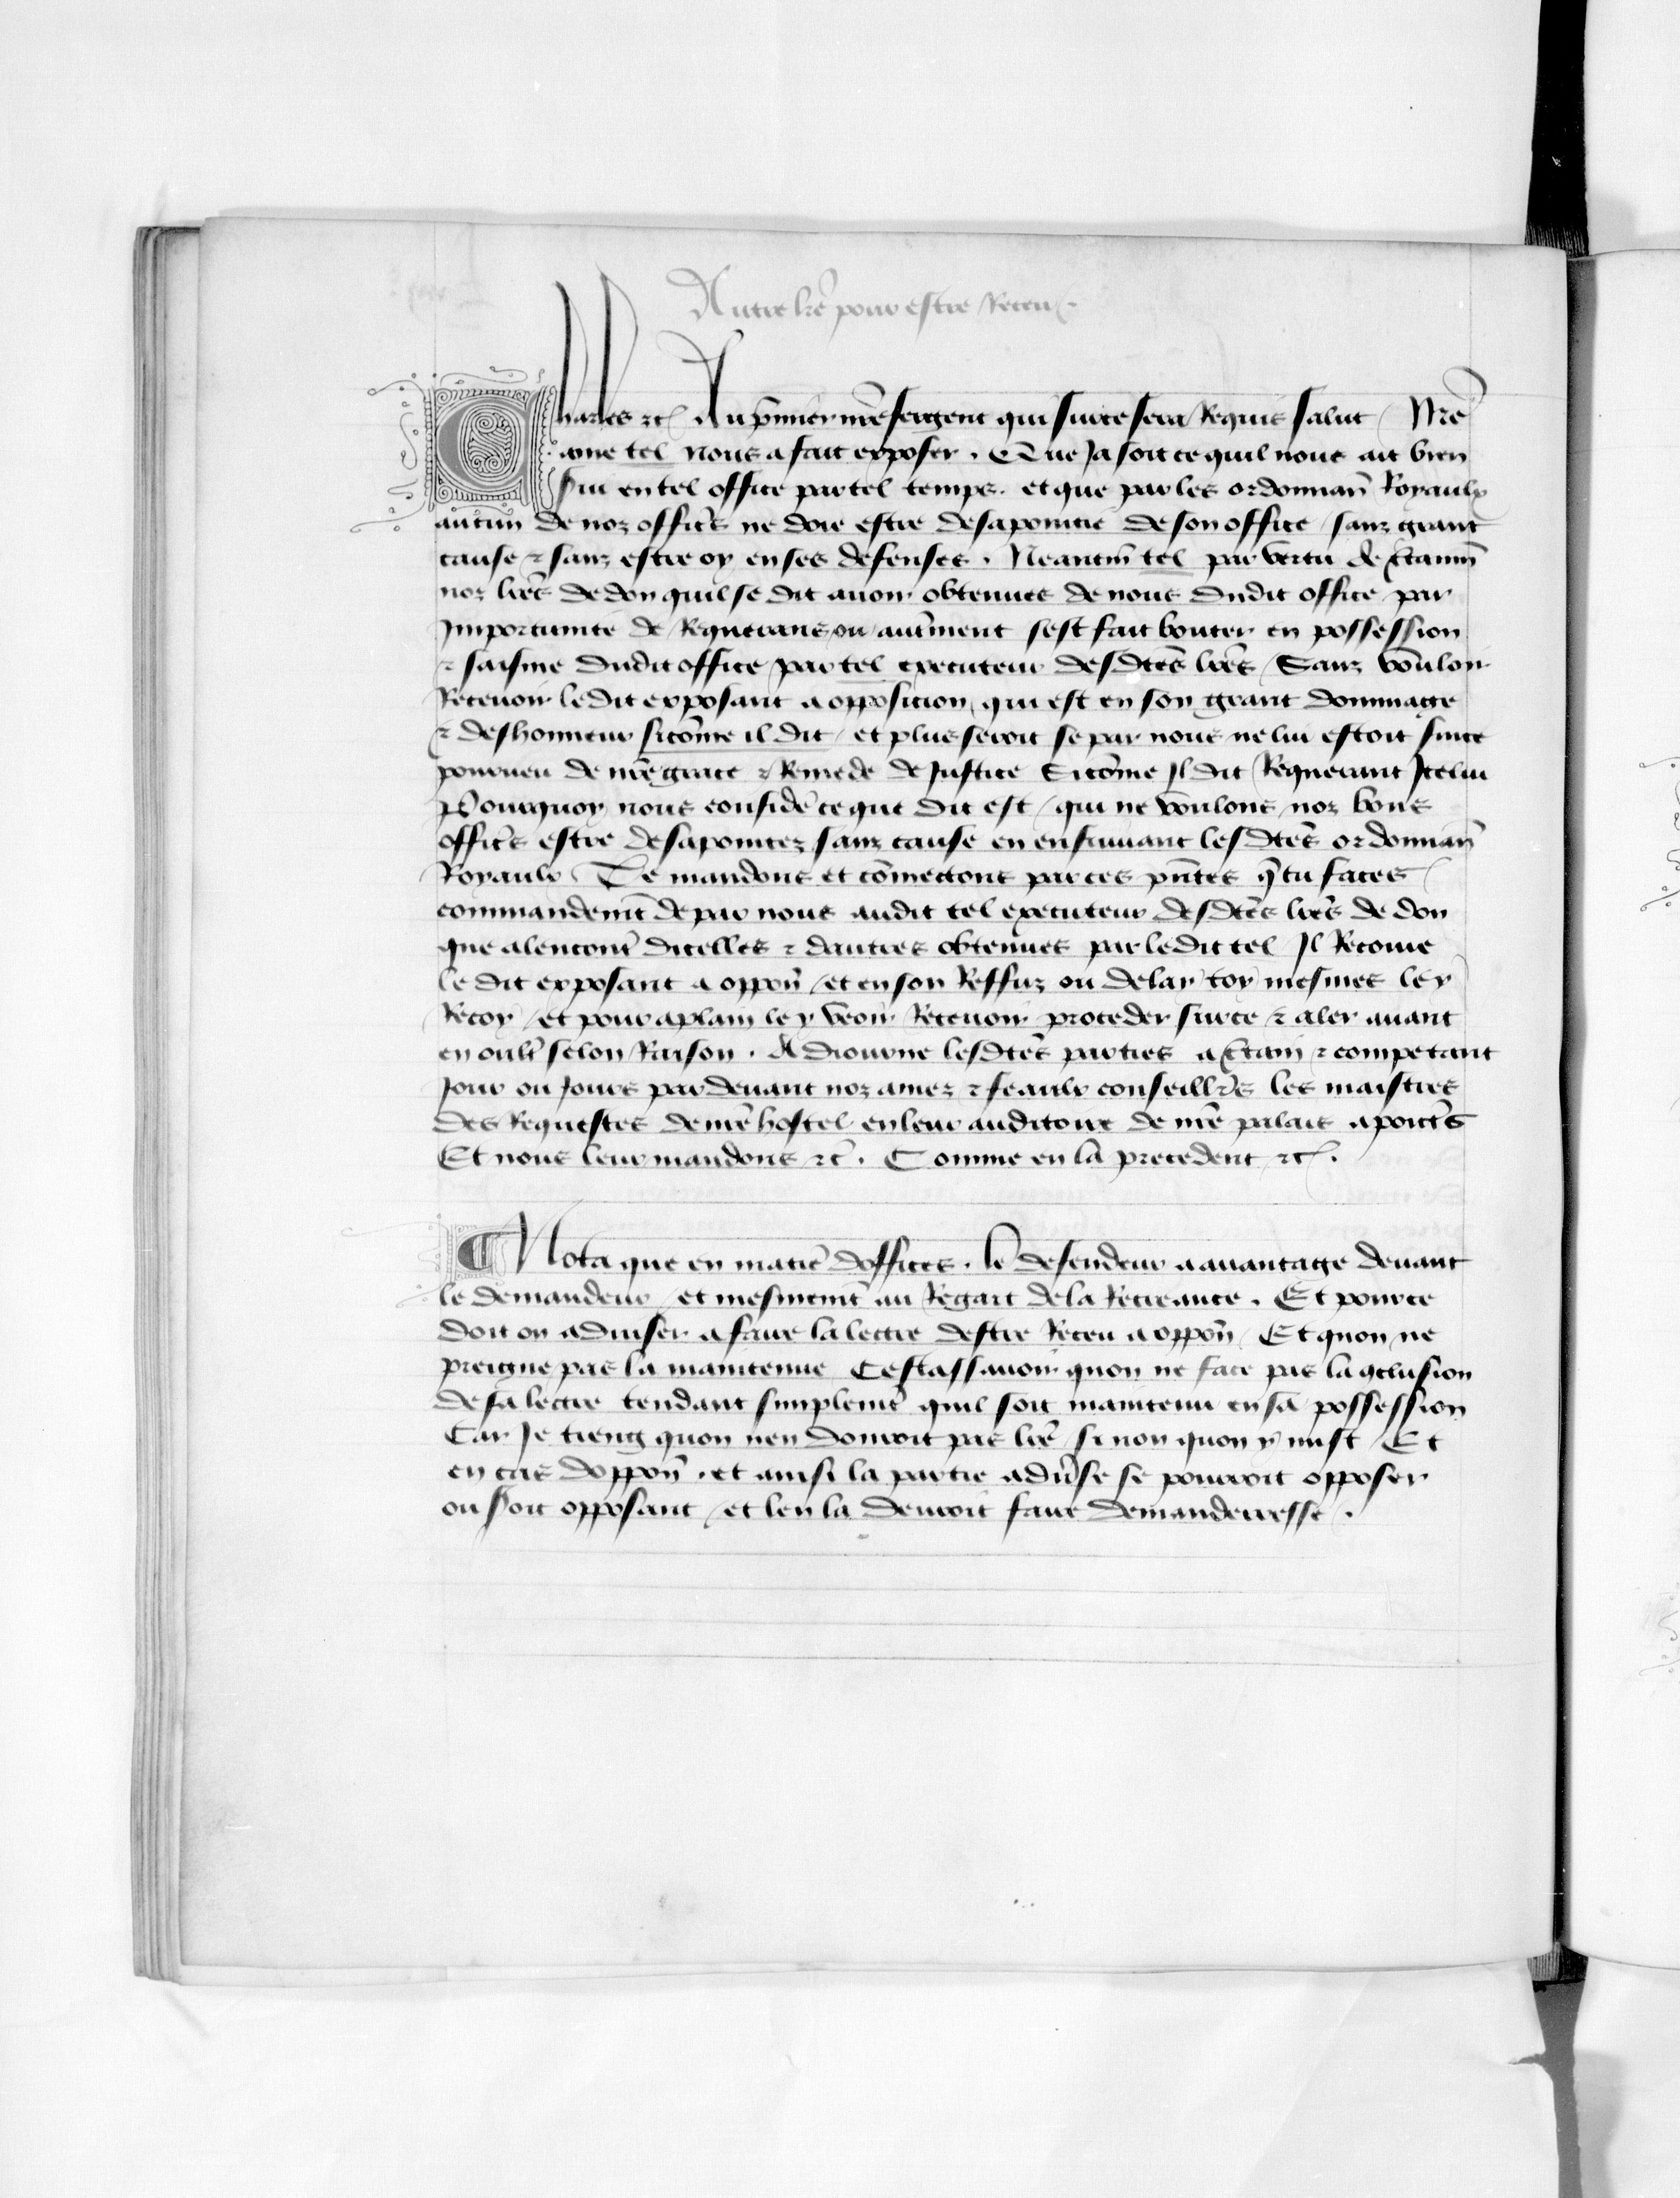 Autre lrẽ pour estre Receu.
Charles etc̃ Au p̃mier nr̃e sergent qui sur ce sera Requis salut Nr̃e
ame tel nous a fait exposer. Que Ja soit ce quil nous ait bien
serui en tel office par tel temps. et que par les ordonnanc̃ Royaulx
aucun de noz officrs̃ ne doie estre desapointie de son office sanz grant
cause ⁊ sanz estre oy en ses defenses. Neantm̃ tel par vertu de c̃tainẽs
noz lrẽs de don quil se dit auoir obtenues de nous dudit office par
Importunite de Requerans ou autr̃ment sest fait bouter en possession
⁊ saisine dudit office par tel executeur desd̃tes lrẽs Sanz vouloir
Receuoir le dit exposant a opposicion qui est en son grant dommage
⁊ deshonneur sicom̃e il dit et plus seroit se par nous ne lui estoit sur ce
pourueu de nr̃e grace ⁊ Remede de Justice Sicom̃e Il dit Requerant Icelui
Pourquoy nous considere ce que dit est qui ne voulons noz bons
officrs̃ estre desapointez sanz cause en ensuiuant lesd̃tes ordonnanc̃
Royaulx Te mandons et com̃ectons par ces pñtes q̃ tu faces
commandemt̃ de par nous audit tel executeur desd̃tes lrẽs de don
que alencontr̃ dicelles ⁊ dautres obtenues par le dit tel Il Recoiue
le dit exposant a oppoñ et en son Reffuz ou delay toy mesmes ley
Recoy et pour aplain ley veoir Receuoir proceder sur ce ⁊ aler auant
en oultr̃ selon Raison. Adiourne lesd̃tes parties a c̃tain ⁊ competant
Jour ou Jours par deuant noz amez ⁊ feaulx conseillrs̃ les maistres
des Requestes de nr̃e hostel en leur auditoire de nr̃e palais a poictrs̃
Et nous leur mandons etc̃. Comme en la precedent etc̃.
¶ Nota que en matier̃ doffices. le defendeur a auantage deuant
le demandeur et mesmemt̃ au Regart de la Recreance. Et pour ce
doit on aduiser a faire la lectre destre Receu a oppoñ Et quon ne
preigne pas la maintenue Cestassauoir quon ne face pas la ꝯclusion
de sa lectre tendant simplemt̃ quil soit maintenu en sa possession
Car Je tieng quon nen donroit pas lrẽ se non quon y mist Et
en cas doppoñ. et ainsi la partie adũse se pourroit opposer
ou soit opposant et len la deuroit faire demanderesse.